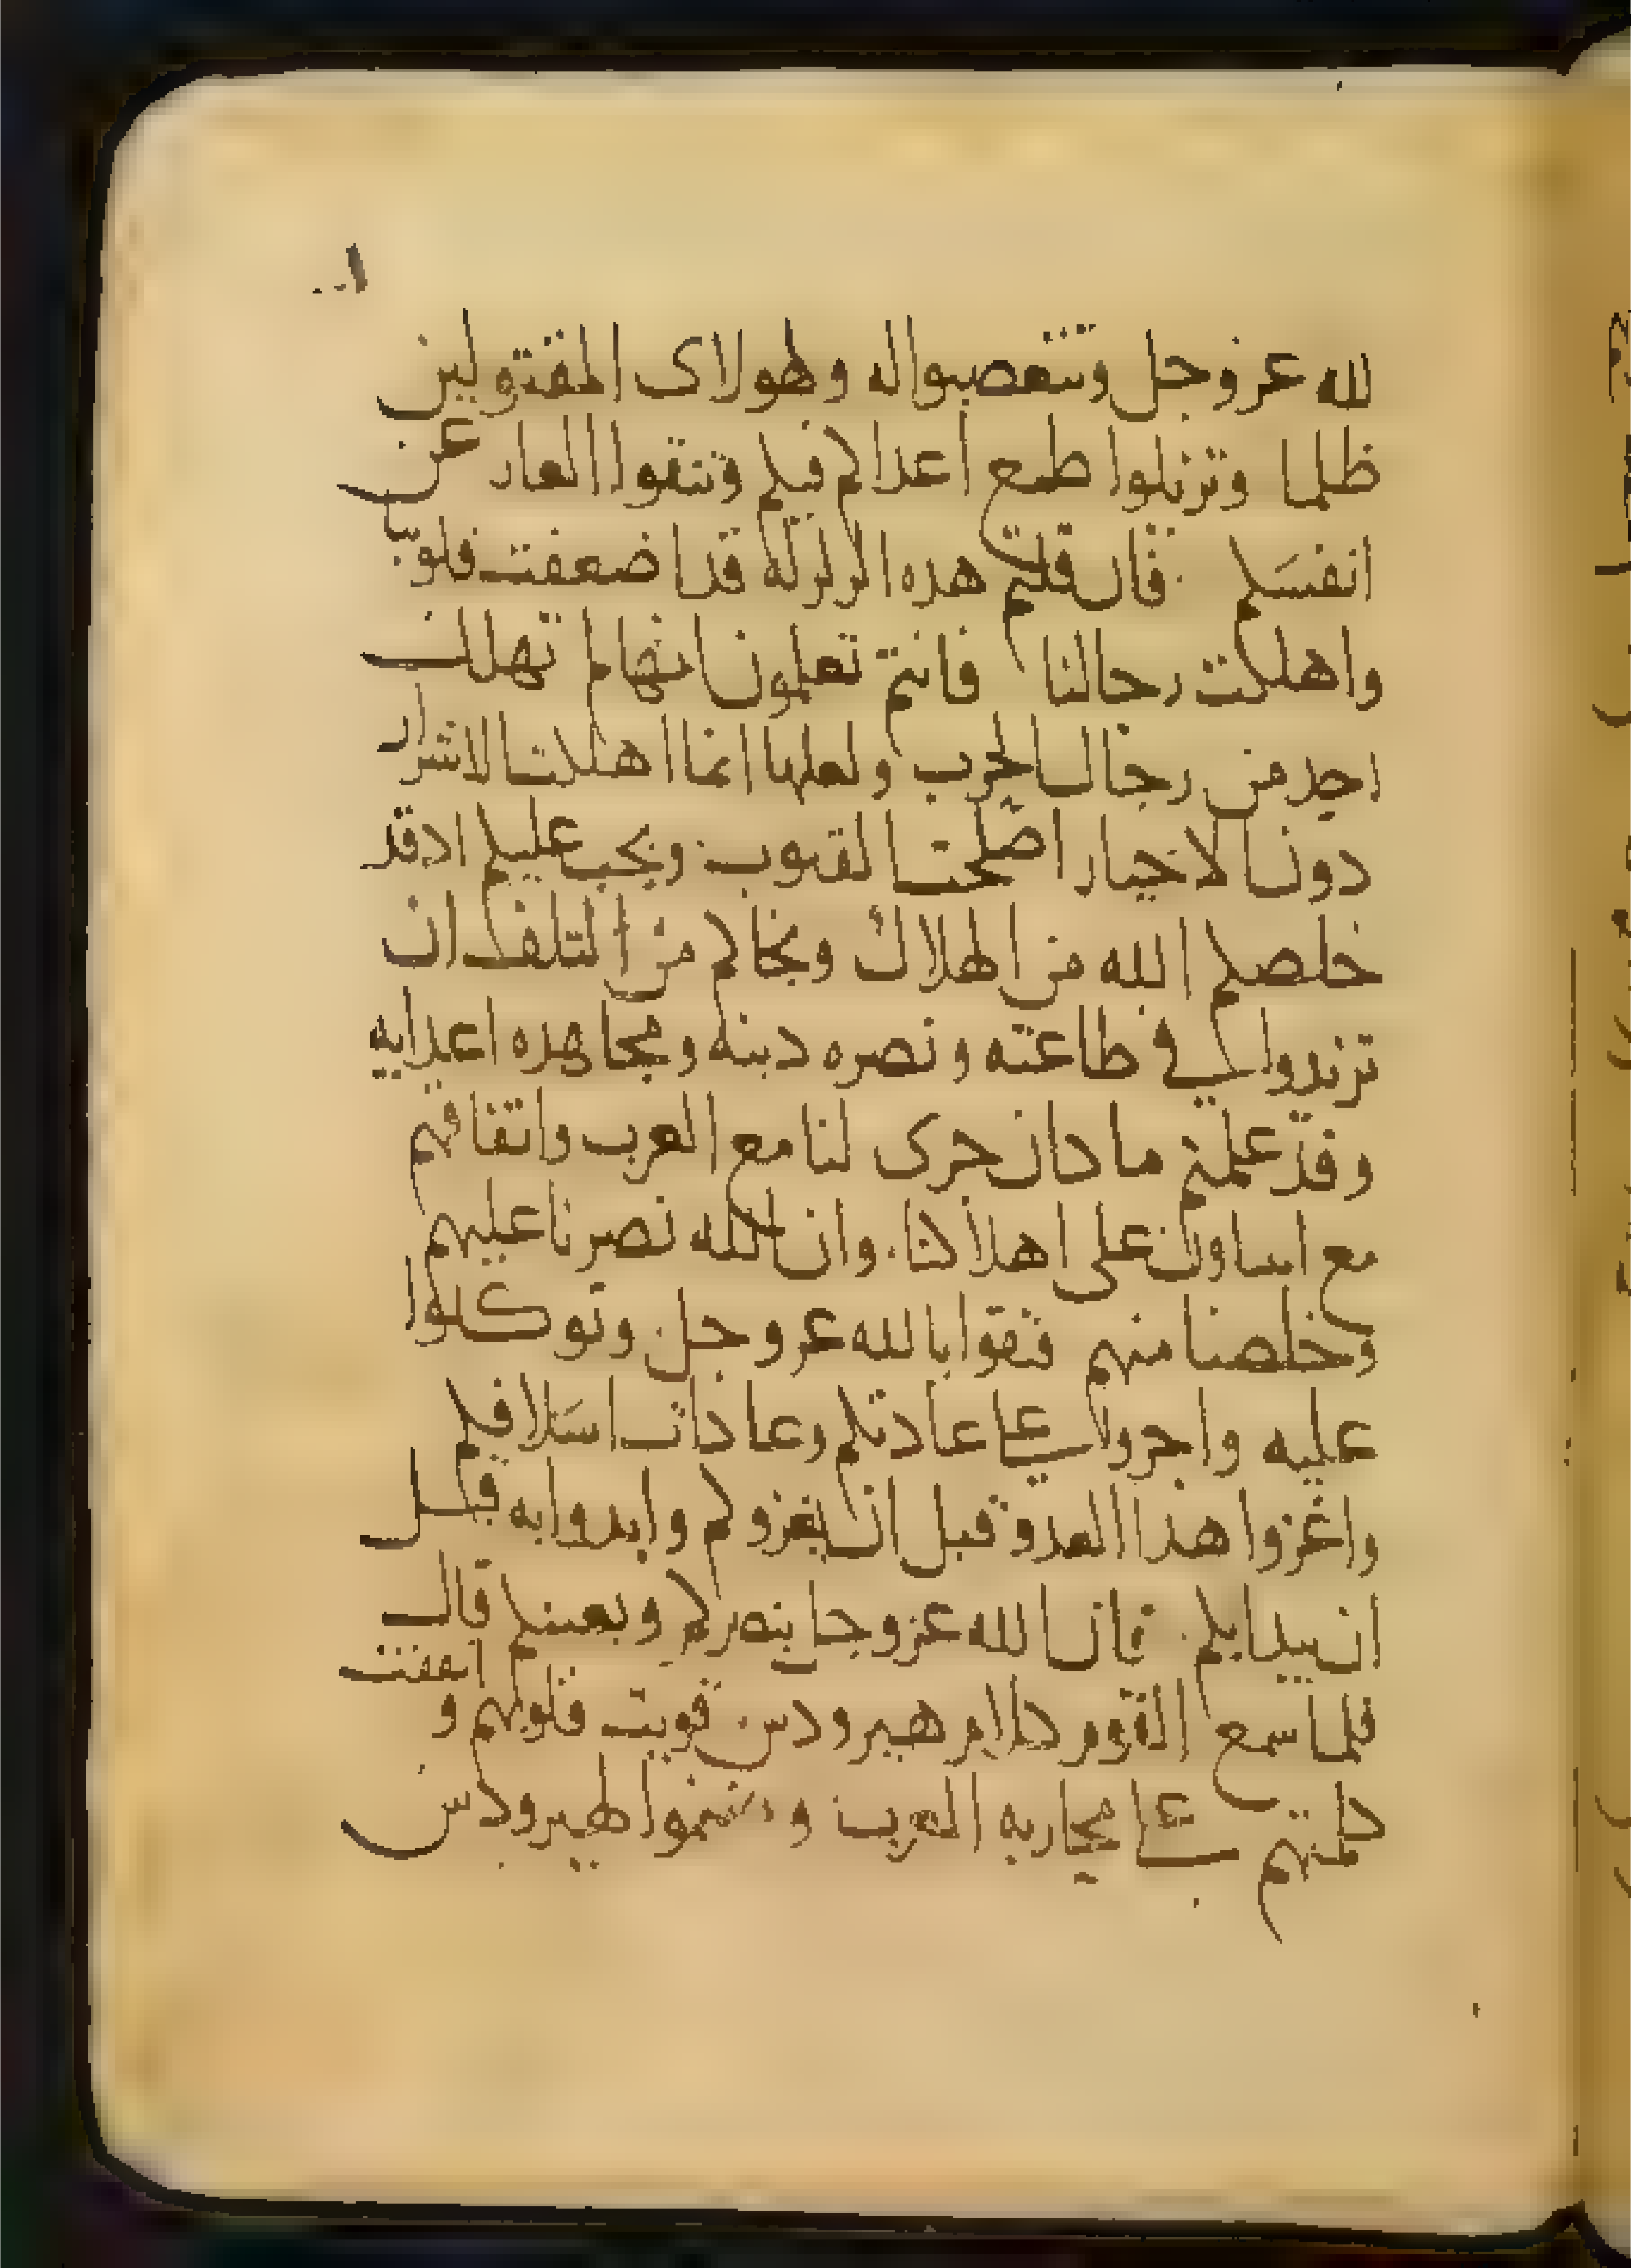 لله عز وجل وتتعصبوا له ولهولاى المقتولين
ظلما وتزيلوا طمع اعداكم فيكم وتنفوا العار عن
انفسكم فان قلتم هذه الزلزله قد اضعفت قلوبنا
واهلكت رجالنا فانتم تعلمون انها لم تهلك
احد من رجال الحرب ولعلها انما اهلكت الاشرار
دون الاخيار اصلحت القلوب ويجب عليكم اد قد
خلصكم الله من الهلاك ونجاكم من التلف ان
تزيدوا في طاعته ونصره دينه ومجاهده اعدايه
وقد علمتم ما كان جرى لنا مع العرب واتفاقهم
مع على اهلاكنا وان الله نصرنا عليهم
وخلصنا منهم فثقوا بالله عز وجل وتوكلوا
عليه واجروا على عادتكم وعادات اسلافكم
واغزوا هذا العدو قبل ان يغزوكم وابدوا به قبل
ان يبدا بكم فان الله عز وجل ينصركم ويعينكم قال
فلما سمع القوم كلام هيرودس قويت قلوبهم و اتفقت
كلمتهم على محاربه العرب و لهيرودس